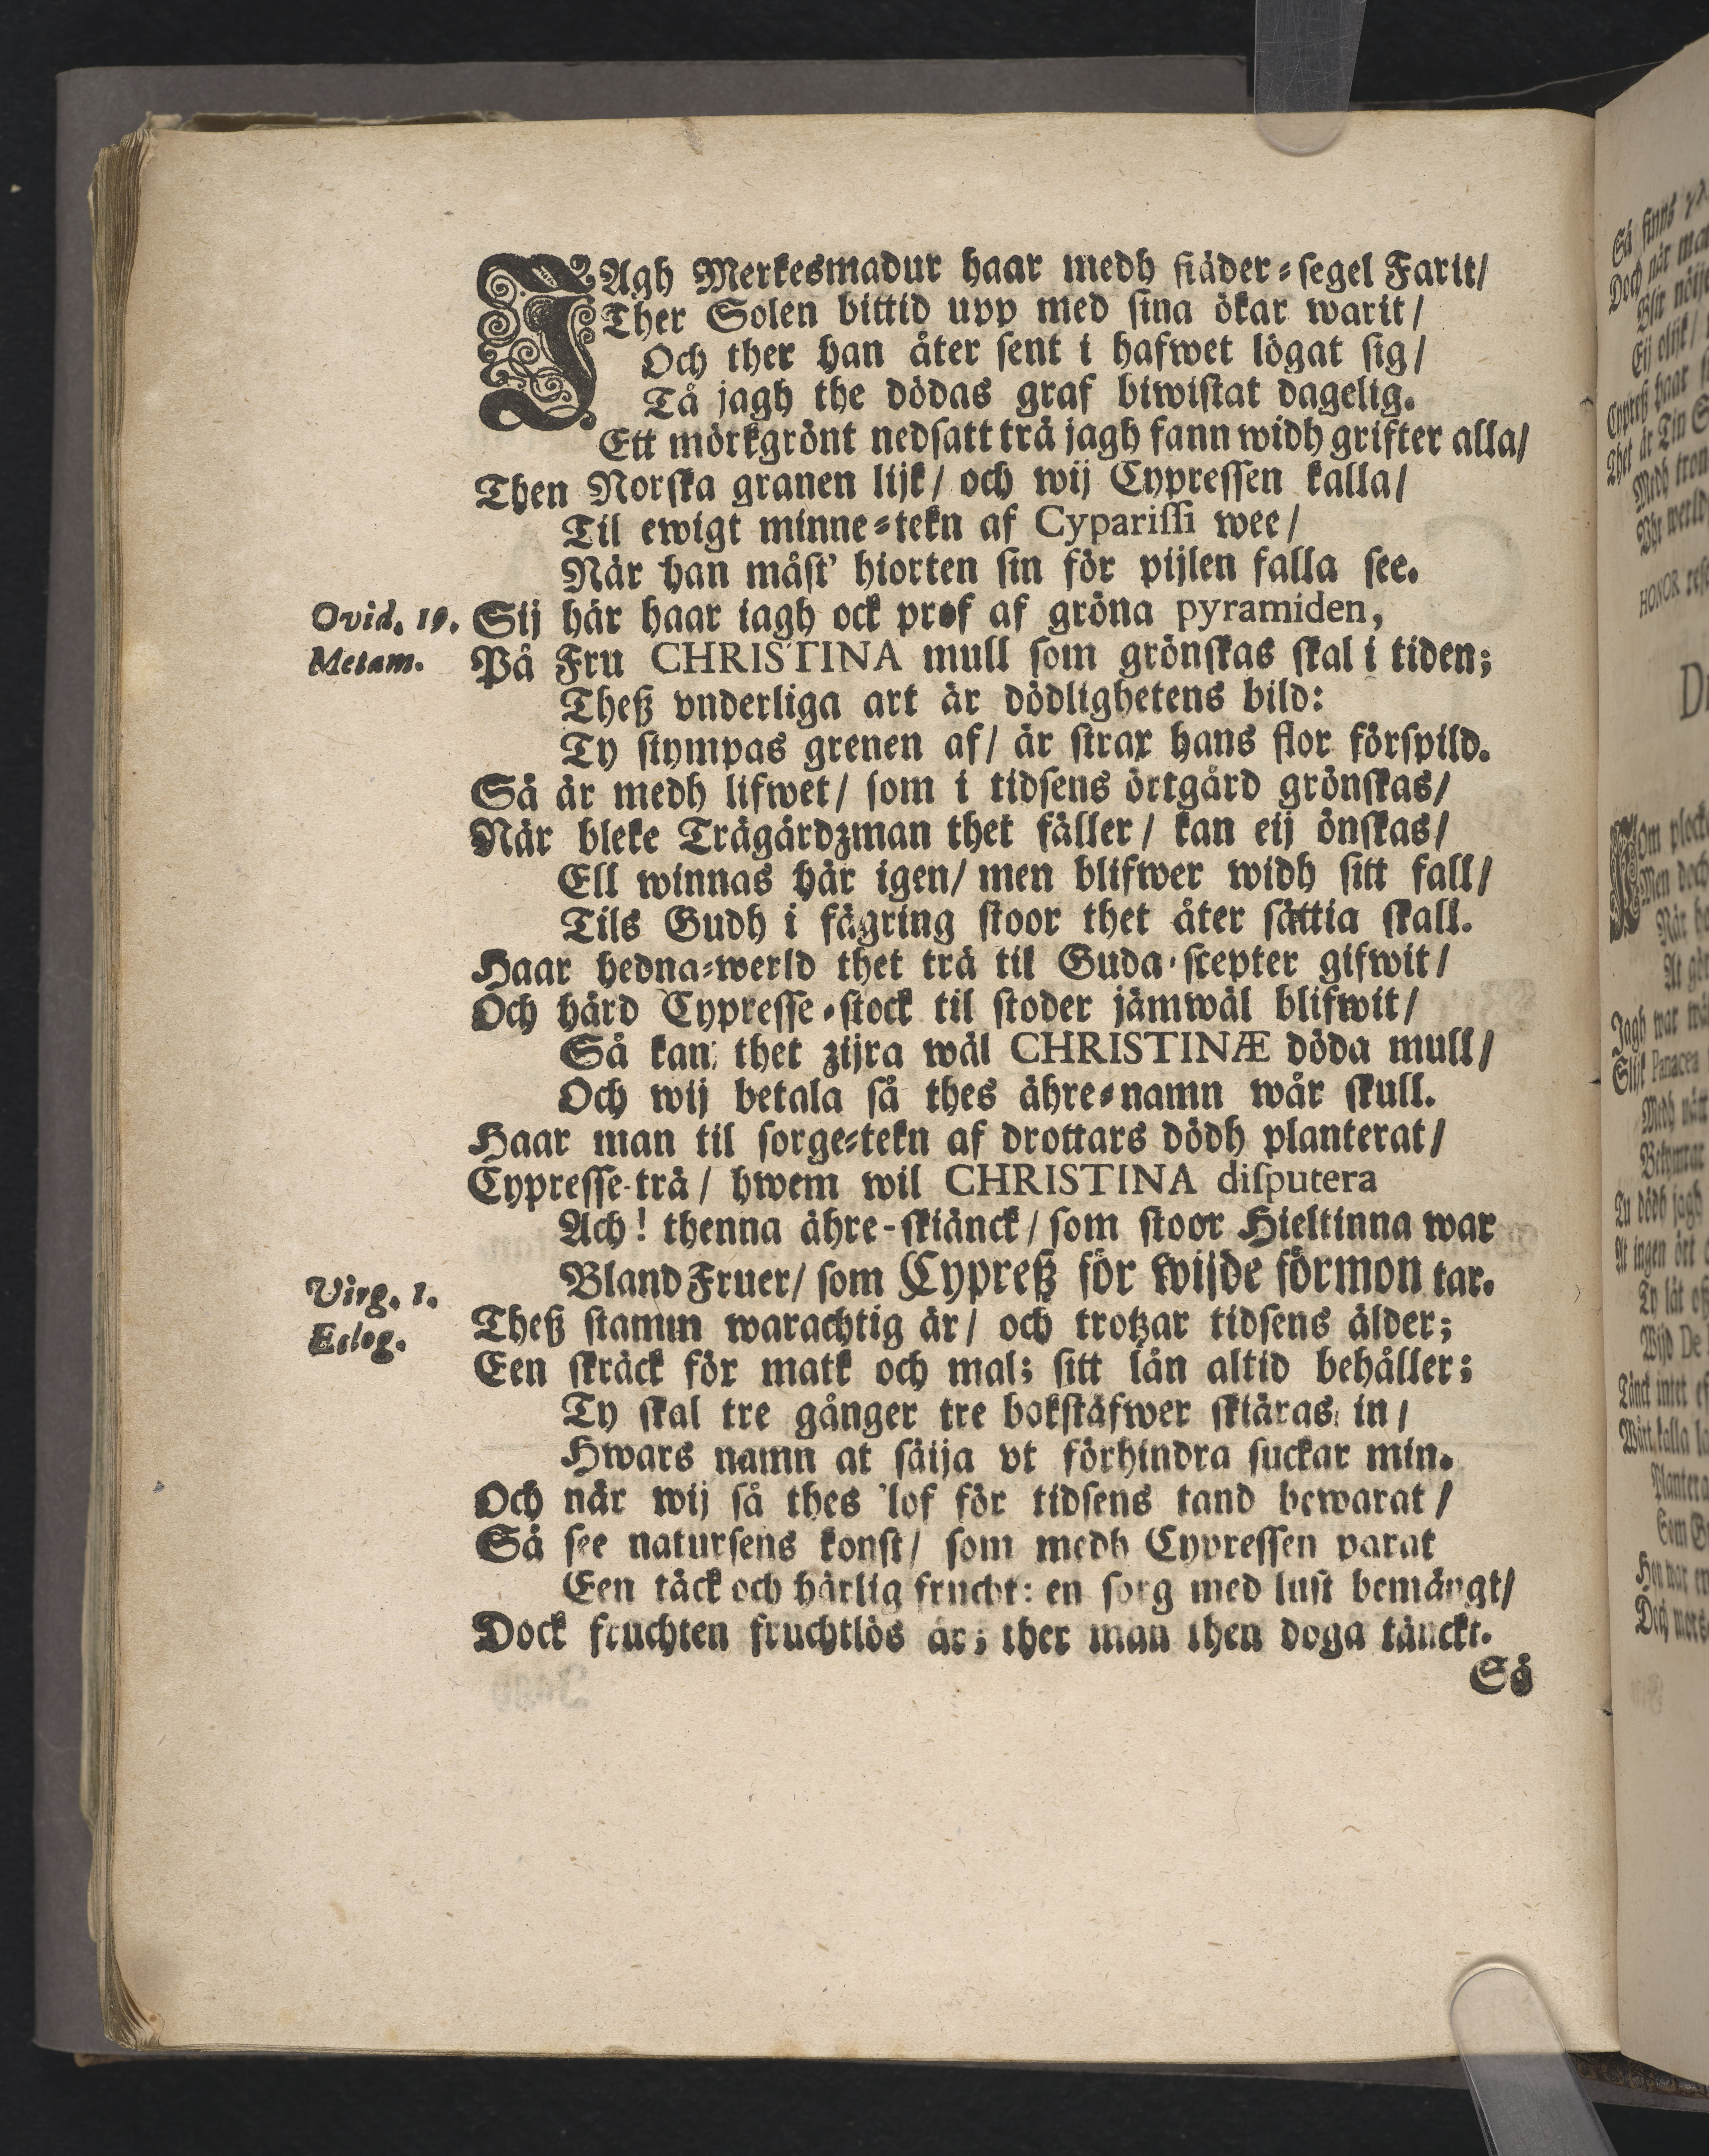 JAgh Merkesmadur haar medh fiäder-segel Farit/
Ther Solen bittid upp med sina ökar warit/
Och ther han åter sent i hafwet lögat sig/
Tå jagh the dödas graf biwistat dagelig.
Ett mörkgrönt nedsatt trä jagh fann widh grifter alla/
Then Norska granen lijk/ och wij Cypressen kalla/
Til ewigt minne-tekn af Cyparissi wee/
När han måst' hiorten sin för pijlen falla see.
Ovid. 10. Sij här haar jagh ock prof af gröna pyramiden,
Metam. På Fru CHRISTINA mull som grönskas skal i tiden;
Theß vnderliga art är dödlighetens bild:
Ty stympas grenen af/ är strax hans flor förspild.
Så är medh lifwet/ som i tidsens örtgård grönskas/
När bleke Trägårdzman thet fäller/ kan eij önskas/
Ell winnas här igen/ men blifwer widh sitt fall/
Tils Gudh i fägring stoor thet åter sättia skall.
Haar hedna-werld thet trä til Guda-scepter gifwit/
Och hård Cypresse-stock til stoder jämwäl blifwit/
Så kan thet zijra wäl CHRISTINÆ döda mull/
Och wij betala så thes ähre-namn wår skull.
Haar man til sorge-tekn af drottars dödh planterat/
Cypresse-trä/ hwem wil CHRISTINA disputera
Ach! thenna ähre-skiänck/ som stoor Hieltinna war
Bland Fruer/ som Cypreß för wijde förmon tar.
Virg. 1. Theß stamm warachtig är/ och trotzar tidsens ålder;
Eclog. Een skräck för matk och mal; sitt lån altid behåller;
Ty skal tre gånger tre bokstäfwer skiäras in/
Hwars namn at säija vt förhindra suckar min.
Och när wij så thes lof för tidsens tand bewarat/
Så see natursens konst/ som medh Cypressen parat
Een täck och härlig frucht: en sorg med lust bemängt/
Dock fruchten fruchtlös är; ther man then doga tänckt.
Så